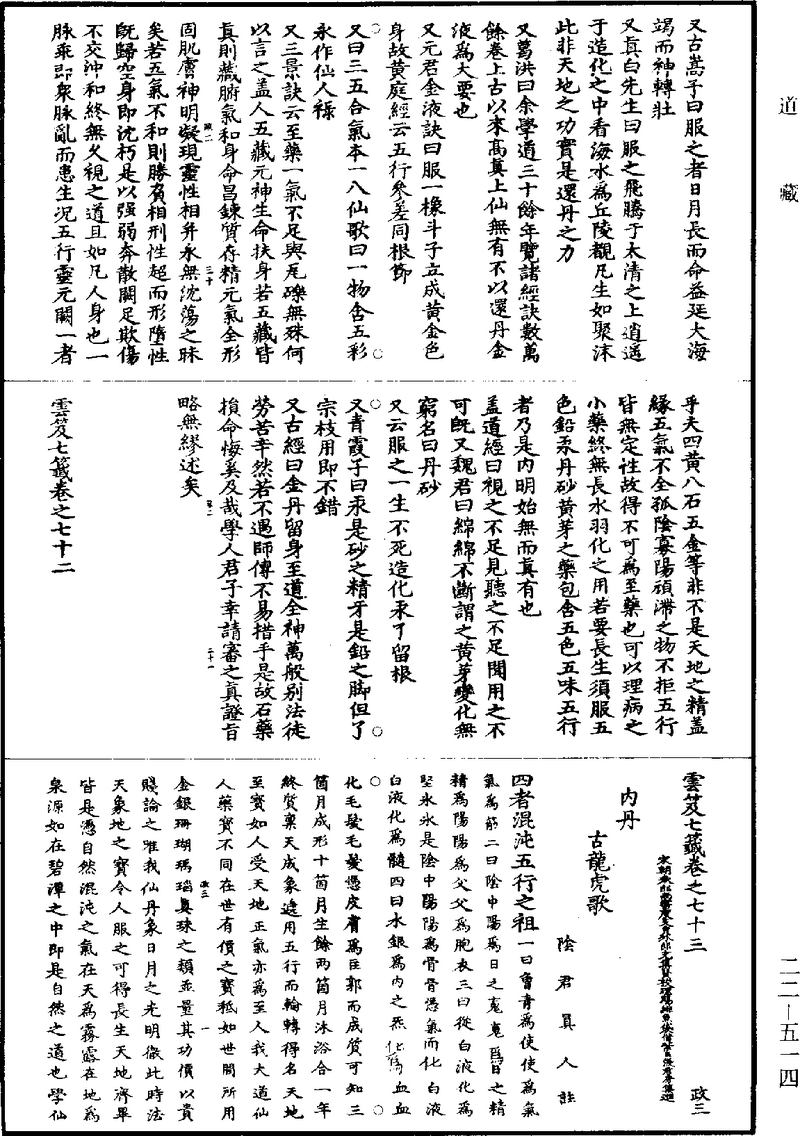 道藏
又古嵩子曰服之者日月長而命益延大海
竭而神轉壯
又真白先生曰服之飛騰于太清之上逍遥
于造化之中看海水為丘陵觀凡生如聚沫
此非天地之功實是還丹之力
又葛洪曰余學道三十餘年覽諸經訣數萬
餘卷上古以來高真上仙無有不以還丹金
液為大要也
又元君金液訣曰服一橡斗子立成黄金色
身故黄庭經云五行叅差同根節
又曰三五合氣本一八仙歌曰一物含五彩
永作仙人禄
又三景訣云至藥一氣不足與瓦礫無殊何
以言之盖人五藏元神生命扶身若五藏皆
真則藏腑氣和身命昌鍊質存精元氣全形
固肌膚神明凝現靈性相舛永無沈蕩之昧
政二
二十
矣若五氣不和則勝負相刑性超而形墮性
既歸空身即沈朽是以强弱奔散闕足欺傷
不交沖和終無乆視之道且如凡人身也一
脉乘即衆脉亂而患生况五行靈元闕一者
乎夫四黄八石五金等非不是天地之精盖
緣五氣不全孤陰寡陽頑滯之物不拒五行
皆無定性故得不可為至藥也可以理病之
小藥終無長水羽化之用若要長生須服五
色鉛汞丹砂黄芽之藥包含五色五味五行
者乃是内明始無而真有也
盖道經曰視之不足見聽之不足聞用之不
可既又魏君曰綿綿不斷謂之黄芽變化無
窮名曰丹砂
又云服之一生不死造化汞了留根
又青霞子曰汞是砂之精牙是鉛之脚但了
宗枝用即不錯
又古經曰金丹留身至道全神萬般别法徒
勞苦辛然若不遇師傳不易措手是故石藥
損命悔奚及哉學人君子幸請審之真證旨
政二
二十一
略無繆述矣
雲笈七籤卷之七十二
雲笈七籤卷之七十三
政三
内丹
古龍虎歌
陰君真人註
四者混沌五行之祖一曰曾青為使使為氣
氣為筋二曰陰中陽為日之䰟䰟為日之精
精為陽陽為父父為胞衣三曰從白液化為
堅氷氷是陰中陽陽為骨骨憑氣而化白液
白液化為髓四曰水銀為内之炁化為血血
化毛髮毛髮憑皮膚為臣郭而成質可知三
箇月成形十箇月生餘两箇月沐浴合一年
終質稟天成象遶用五行而輪轉得名天地
至寳如人受天地正氣亦為至人我大道仙
人藥寳不同在世有價之寳秪如世間所用
政三
一
金銀珊瑚瑪瑙真珠之類並量其功價以貴
賤論之唯我仙丹象日月之光明倣此時法
天象地之寳令人服之可得長生天地濟畢
皆是憑自然混沌之氣在天為霧露在地為
泉源如在碧潭之中即是自然之道也學仙
二二—五一四